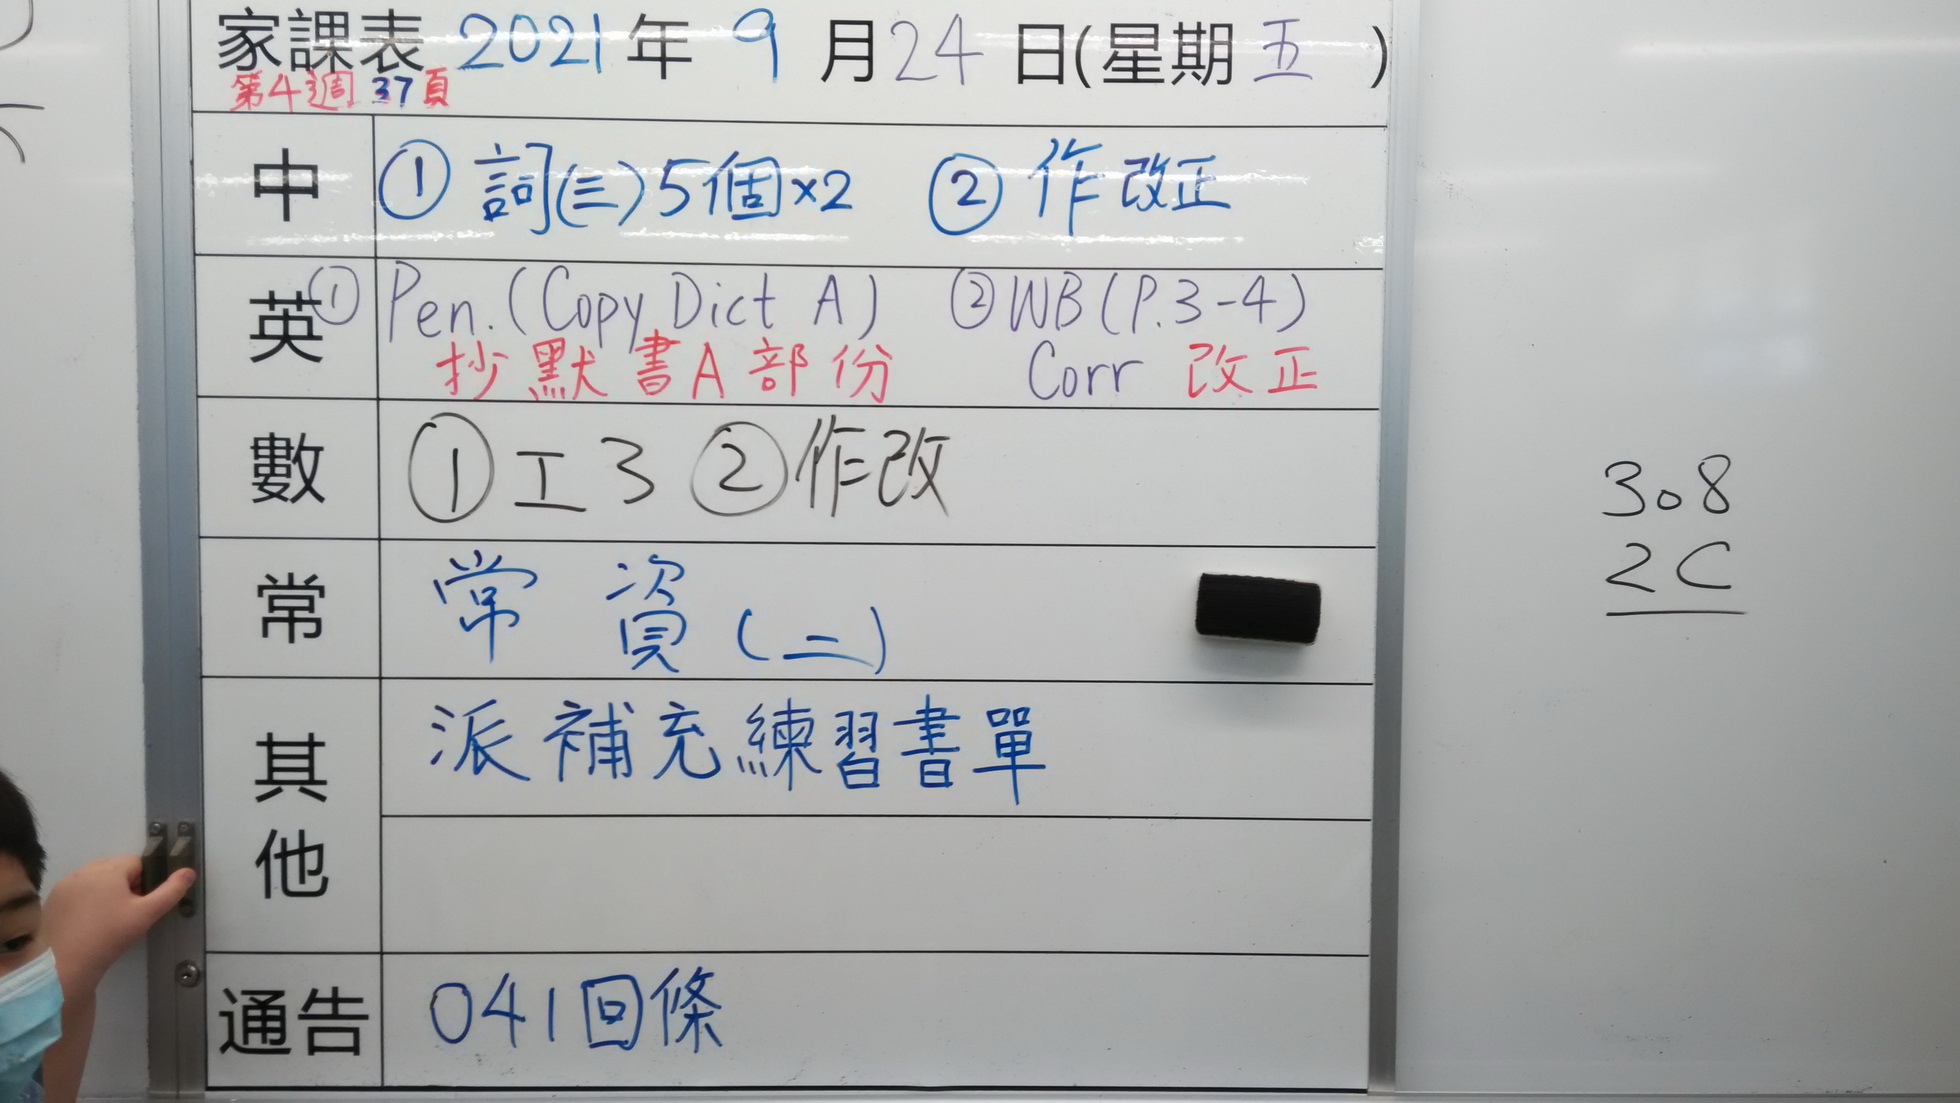 家課表 2021年 9月24日(星期五)
第4週 37頁
中 ① 詞(三)5個×2 ② 作改正
英 ① Pen.(Copy Dict A) ② WB(P.3-4)
抄默書A部份 Corr 改正
數 ① 工3 ② 作改
常 常資(二)
其他 派補充練習書單
通告 041回條
308
2C